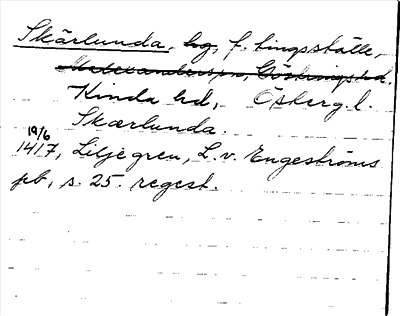 Skärlunda, hg, f. tingsställe,
Kinda hd, Östergl.
Skærlunda.
19/6
1417, Liljegren, L. v. Engeströms
pb, s. 25. regest.